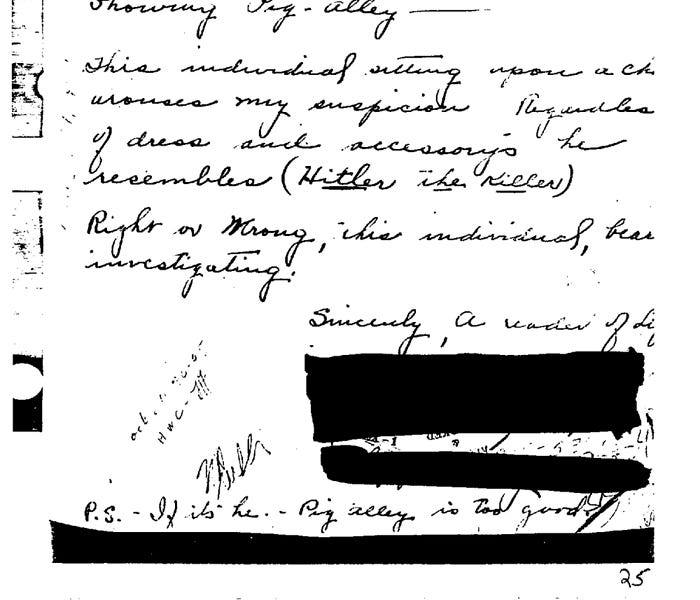 Showing Pig-alley —
This individual sitting upon a
arouses my suspicion Regardles
of dress and accessory's he
resembles (Hitler the Killer)
Right or Wrong, this individual, bear
investigating.
Sincerely, A reader of
P.S. - If its he. - Pig alley is too good
25